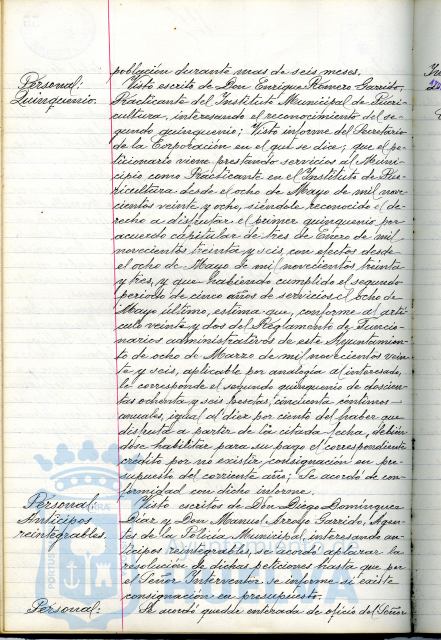 población durante mas de seis meses.
Personal:
Quinquenio.
Visto escrito de Don Enrique Romero Garrido,
Practicante del Instituto Municipal de Pueri-
cultura, interesando el reconocimiento del se-
gundo quinquenio; Visto informe del Secretario
de la Corporación en el que se dice; que el pe-
ticionario viene prestando servicios al Muni-
cipio como Practicante en el Instituto de Pue-
ricultura desde el ocho de Mayo de mil nove-
cientos veinte y ocho, siéndole reconocido el de-
recho a disfrutar el primer quinquenio por
acuerdo capitular de tres de Enero de mil
novecientos treinta y seis, con efectos desde
el ocho de Mayo de mil novecientos treinta
y tres, y que habiendo cumplido el segundo
periodo de cinco años de servicios el ocho de
Mayo último, estima que, conforme al artí-
culo veinte y dos del Reglamento de Funcio-
narios administrativos de este Ayuntamien-
to de ocho de Marzo de mil novecientos vein-
te y seis, aplicable por analogía al interesado,
le corresponde el segundo quinquenio de doscien-
tas ochenta y seis pesetas, cincuenta céntimos
anuales, igual al diez por ciento del haber que
disfruta a partir de la citada fecha, debién-
dose habilitar para su pago el correspondiente
crédito por no existir consignación en pre-
supuesto del corriente año; Se acordó de con-
formidad con dicho informe.
Personal:
Anticipos
reintegrables.
Visto escritos de Don Diego Domínguez
Díaz y Don Manuel Arroyo Garrido, Agen-
tes de la Policía Municipal, interesando an-
ticipos reintegrables, se acordó aplazar la
resolución de dichas peticiones hasta que por
el Señor Interventor se informe si existe
consignación en presupuesto.
Personal:
Se acordó quedar enterada de oficio del Señor